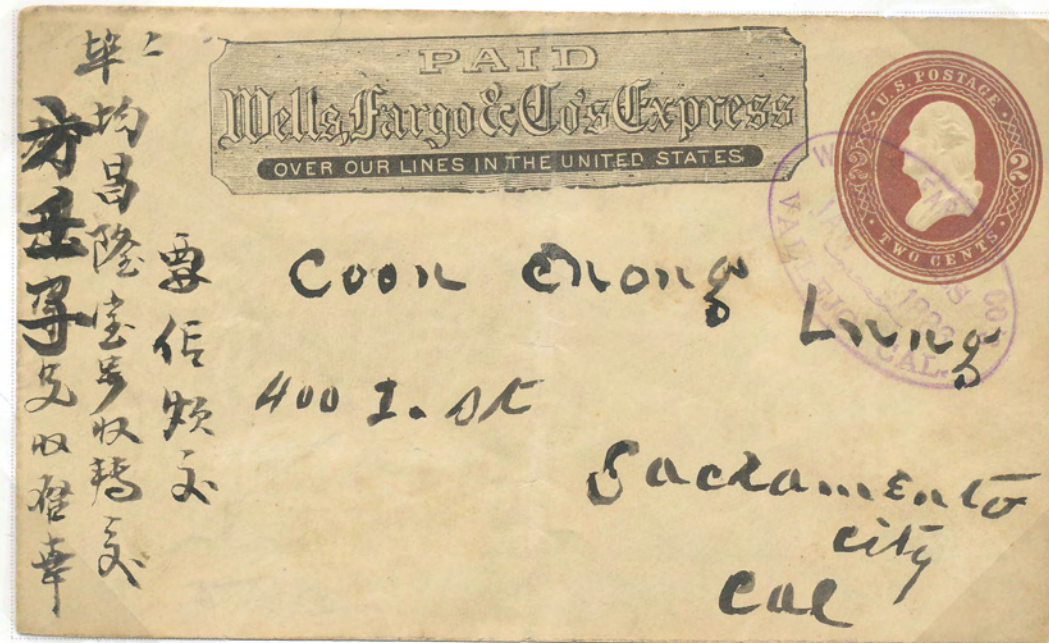 PAID
Wells, Fargo & Co's Express
OVER OUR LINES IN THE UNITED STATES
U.S. POSTAGE
2 2
TWO CENTS
VALLEJO, CAL.
Coon Chong
Lung
400 I. St
Sacramento
city
Cal
要信煩交
二埠均昌隆宝号收轉交
兄收啓